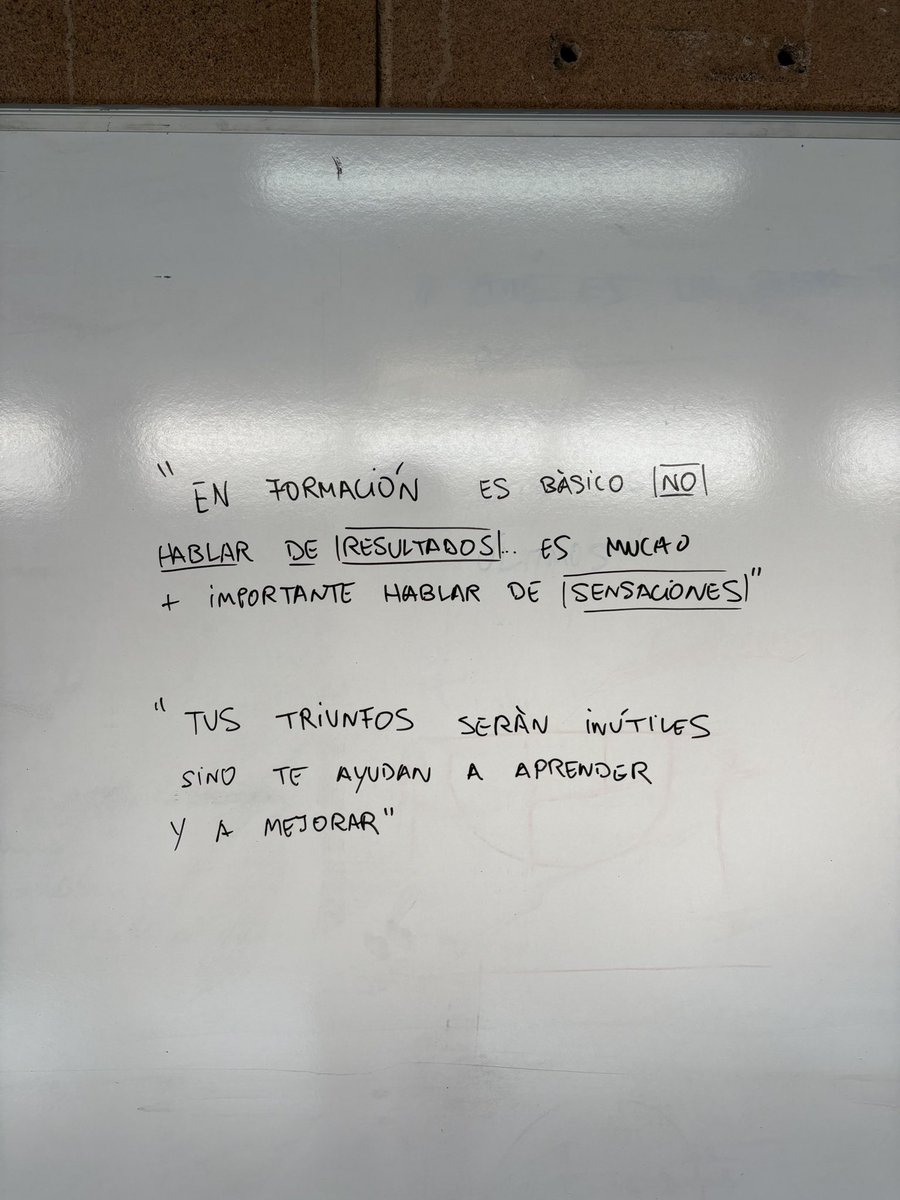 " EN FORMACIÓN ES BÀSICO NO
HABLAR DE RESULTADOS... ES MUCHO
+ IMPORTANTE HABLAR DE SENSACIONES"
" TUS TRIUNFOS SERÀN INÚTILES
SINO TE AYUDAN A APRENDER
Y A MEJORAR"